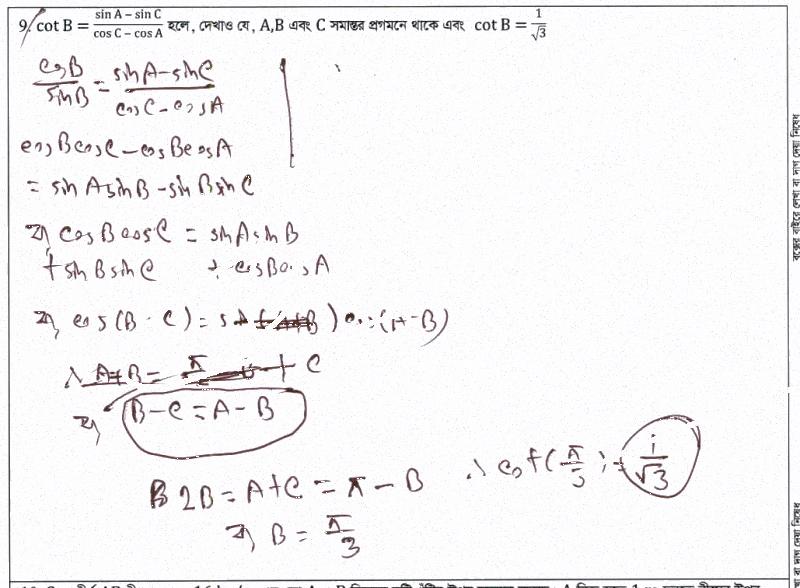 9. cot B = (sin A − sin C)/(cos C − cos A) হলে, দেখাও যে, A,B এবং C সমান্তর প্রগমনে থাকে এবং cot B = 1/√3
cosB/sinB = (sinA − sinC)/(cosC − cosA)
cosBcosC − cosBcosA
= sinAsinB − sinBsinC
বা, cosBcosC = sinAsinB
+ sinBsinC + cosBcosA
বা, cos(B − C) = cos(A−B)
∴ A+B = π + C
বা, B−C = A−B
2B = A+C = π − B
বা, B = π/3
∴ cot(π/3) = 1/√3
বক্সের বাইরে লেখা বা দাগ দেয়া নিষেধ